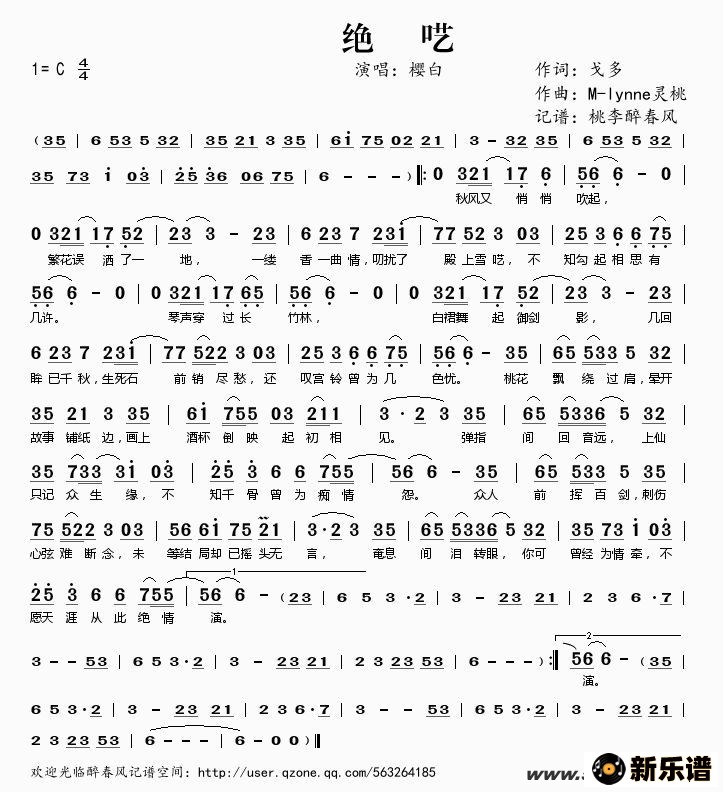 绝 呓
1=C 4/4 演唱：樱白 作词：戈多
作曲：M-lynne灵桃
记谱：桃李醉春风
(35 | 6 53 5 32 | 35 21 3 35 | 6i 75 02 21 | 3 - 32 35 | 6 53 5 32 |
35 73 i 03 | 25 36 06 75 | 6 - - ) ‖: 0 321 17 6 | 56 6 - 0 |
秋风又 悄 悄 吹起，
0 321 17 52 | 23 3 - 23 | 6 237 231 | 77 52 3 03 | 25 3 6 6 75 |
繁花误 洒 了一 地， 一缕 香一曲 情，叨扰了 殿上雪 呓，不 知勾起相思有
56 6 - 0 | 0 321 17 65 | 56 6 - 0 | 0 321 17 52 | 23 3 - 23 |
几许。 琴声穿 过长 竹林， 白裙舞 起 御剑 影， 几回
6 23 7 231 | 77 522 3 03 | 25 3 6 6 75 | 56 6 - 35 | 65 533 5 32 |
眸已千秋，生死石 前销 尽愁，还 叹宫铃曾为几 色忧。 桃花 飘 绕过肩，晕开
35 21 3 35 | 6i 755 03 211 | 3 · 2 3 35 | 65 5336 5 32 |
故事 铺纸 边，画上 酒杯 倒映 起初相 见。 弹指 间 回音远，上仙
35 733 3i 03 | 25 3 6 6 755 | 56 6 - 35 | 65 533 5 35 |
只记 众生 缘，不 知千骨曾为痴情 怨。 众人 前 挥百剑，刺伤
75 522 3 03 | 56 6i 75 21 | 3 · 2 3 35 | 65 5336 5 32 | 35 73 i 03 |
心弦难断念，未 等结局却已摇头无 言， 奄息 间 泪转眼，你可 曾经为情牵，不
25 3 6 6 755 | 56 6 - (23 | 6 5 3 · 2 | 3 - 23 21 | 2 3 6 · 7 |
愿天涯从此绝情 演。
1
3 - - 53 | 6 5 3 · 2 | 3 - 23 21 | 2 3 23 53 | 6 - - - ) :‖ 56 6 - (35 |
2
演。
6 5 3 · 2 | 3 - 23 21 | 2 3 6 · 7 | 3 - - 53 | 6 5 3 · 2 | 3 - 23 21 |
2 3 23 53 | 6 - - - | 6 - 0 0 ) ‖
欢迎光临醉春风记谱空间：http://user.qzone.qq.com/563264185
www.
新乐谱